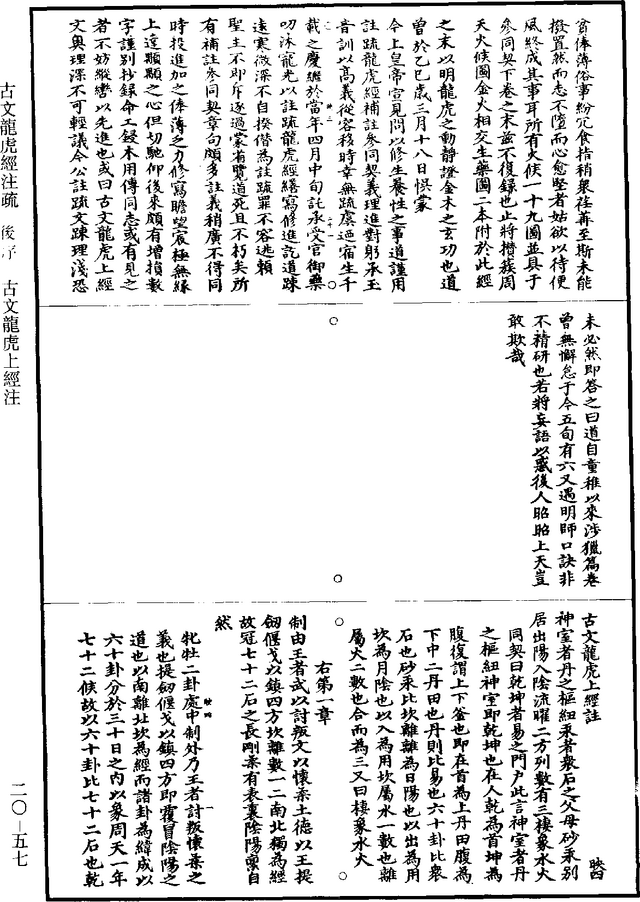 古文龍虎經注疏　後序　古文龍虎上經注
二〇－五七
貧俸薄俗事紛冗食指稍衆荏苒至斯未能
撥置然而志不墮而心愈堅者姑欲以待便
風終成其事耳所有火候一十九圖並具于
參同契下卷之末茲不復錄也止將攢蔟周
天火候圖金火相交生藥圖二本附於此經
之末以明龍虎之動靜證金木之玄功也道
曾於乙巳歲三月十八日悞蒙
今上皇帝宣見問以修生養性之事道謹用
註疏龍虎經補註參同契義理進對躬承玉
音訓以高義從容移時幸無䟽虞過宿生千
載之慶纔於當年四月中旬託承受官御藥
叨沐寵光以註疏龍虎經繕寫修進訖道踈
遠寒微深不自揆僭為註疏罪不容逃賴
聖主不即斥逐過蒙肯覽道死且不朽矣所
有補註參同契章句頗多註義稍廣不得同
時投進加之俸薄之力修寫瞻望宸極無緣
上達顒顒之心但切馳仰後來頗有增損數
字謹別抄錄命工鋟木用傳同志或有見之
者不妨縱轡以先進也或曰古文龍虎上經
文奧理深不可輕議今公註疏文踈理淺恐
未必然即答之曰道自童稚以來涉獵篇卷
曾無懈怠于今五旬有六又遇明師口訣非
不精研也若將妄語以惑後人昭昭上天豈
敢欺哉
古文龍虎上經註
神室者丹之樞紐汞者衆石之父母砂汞別
居出陽入陰流曜二方列數有三棲象水火
同契曰乾坤者易之門戶此言神室者丹
之樞紐神室即乾坤也在人乾為首坤為
腹復謂上下釜也即在首為上丹田腹為
下中二丹田也丹則比易也六十卦比衆
石也砂汞比坎離離為日陽也以出為用
坎為月陰也以入為用坎屬水一數也離
屬火二數也合而為三又曰棲象水火
右第一章
制由王者武以討叛文以懷柔土德以王提
劒偃戈以鎮四方坎離數一二南北獨為經
故冠七十二石之長剛柔有表裏陰陽稟自
然
牝牡二卦處中制外乃王者討叛懷柔之
義也提劒偃戈以鎮四方即覆冒陰陽之
道也以南離北坎為經而諸卦為緯成以
六十卦分於三十日之內以象周天一年
七十二候故以六十卦比七十二石也乾